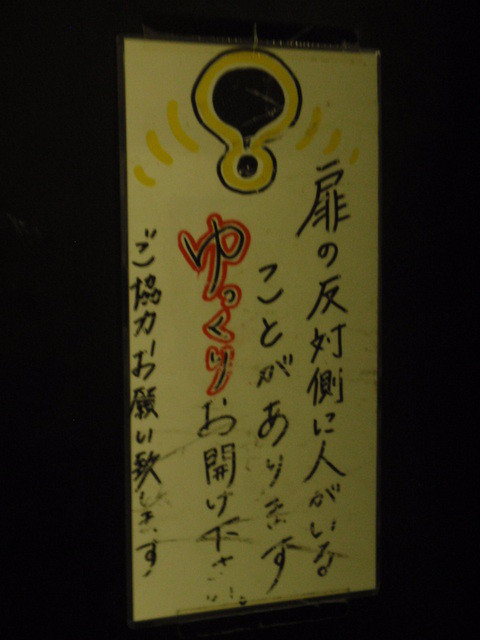 扉の反対側に人がいる
ことがあります
ゆっくりお開け下さい
ご協力お願い致します